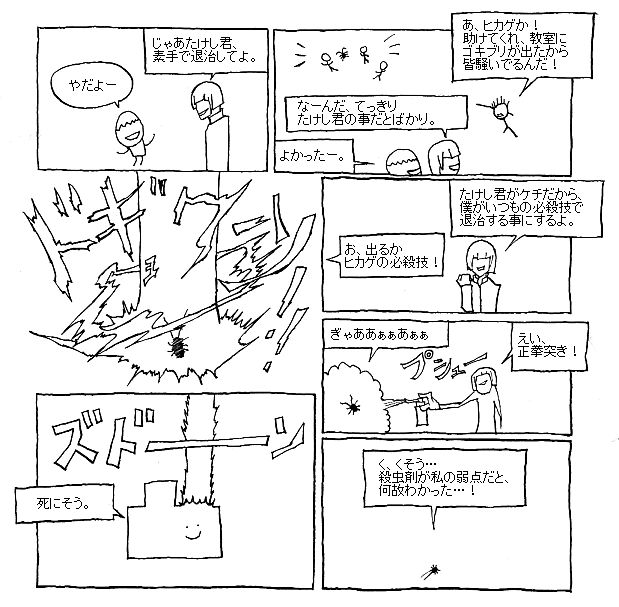 あ、ヒカゲか！
助けてくれ、教室に
ゴキブリが出たから
皆騒いでるんだ！
なーんだ、てっきり
たけし君の事だとばかり。
よかったー。
じゃあたけし君、
素手で退治してよ。
やだよー
たけし君がケチだから、
僕がいつもの必殺技で
退治する事にするよ。
お、出るか
ヒカゲの必殺技！
えい、
正拳突き！
プシュー
ぎゃああぁぁあぁぁ
く、くそう…
殺虫剤が私の弱点だと、
何故わかった…！
ドギウーン
ズドーン
死にそう。